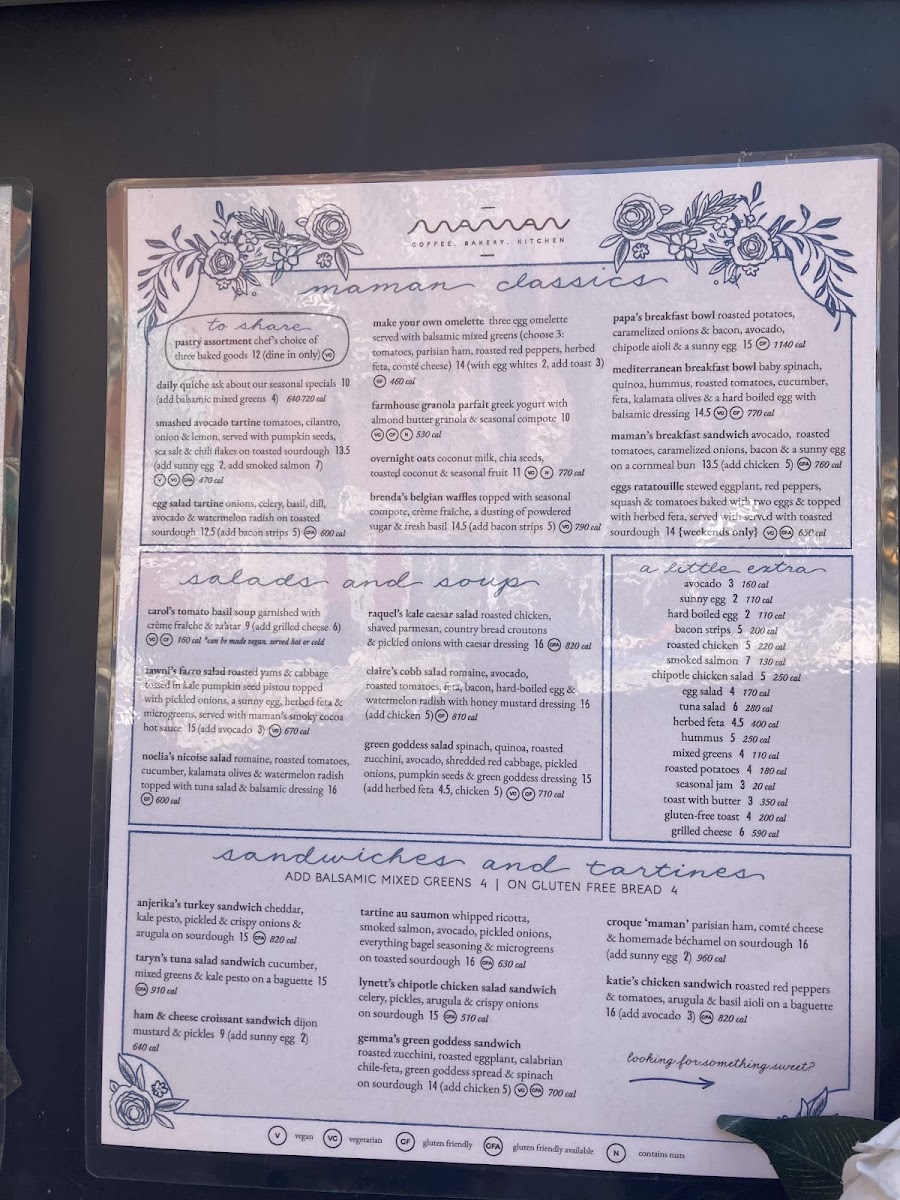 maman
COFFEE. BAKERY. KITCHEN
maman classics
to share
pastry assortment chef's choice of
three baked goods 12 (dine in only) VG
daily quiche ask about our seasonal specials 10
(add balsamic mixed greens 4) 640-720 cal
smashed avocado tartine tomatoes, cilantro,
onion & lemon, served with pumpkin seeds,
sea salt & chili flakes on toasted sourdough 13.5
(add sunny egg 2, add smoked salmon 7)
V VG GFA 470 cal
egg salad tartine onions, celery, basil, dill,
avocado & watermelon radish on toasted
sourdough 12.5 (add bacon strips 5) GFA 600 cal
make your own omelette three egg omelette
served with balsamic mixed greens (choose 3:
tomatoes, parisian ham, roasted red peppers, herbed
feta, comté cheese) 14 (with egg whites 2, add toast 3)
GF 460 cal
farmhouse granola parfait greek yogurt with
almond butter granola & seasonal compote 10
VG GF N 530 cal
overnight oats coconut milk, chia seeds,
toasted coconut & seasonal fruit 11 VG N 770 cal
brenda's belgian waffles topped with seasonal
compote, crème fraîche, a dusting of powdered
sugar & fresh basil 14.5 (add bacon strips 5) VG 790 cal
papa's breakfast bowl roasted potatoes,
caramelized onions & bacon, avocado,
chipotle aioli & a sunny egg 15 GF 1140 cal
mediterranean breakfast bowl baby spinach,
quinoa, hummus, roasted tomatoes, cucumber,
feta, kalamata olives & a hard boiled egg with
balsamic dressing 14.5 VG GF 770 cal
maman's breakfast sandwich avocado, roasted
tomatoes, caramelized onions, bacon & a sunny egg
on a cornmeal bun 13.5 (add chicken 5) GFA 760 cal
eggs ratatouille stewed eggplant, red peppers,
squash & tomatoes baked with two eggs & topped
with herbed feta, served with served with toasted
sourdough 14 {weekends only} VG GFA 650 cal
salads and soup
carol's tomato basil soup garnished with
crème fraîche & za'atar 9 (add grilled cheese 6)
VG GF 160 cal *can be made vegan. served hot or cold
tawni's farro salad roasted yams & cabbage
tossed in kale pumpkin seed pistou topped
with pickled onions, a sunny egg, herbed feta &
microgreens, served with maman's smoky cocoa
hot sauce 15 (add avocado 3) VG 670 cal
noelia's nicoise salad romaine, roasted tomatoes,
cucumber, kalamata olives & watermelon radish
topped with tuna salad & balsamic dressing 16
GF 600 cal
raquel's kale caesar salad roasted chicken,
shaved parmesan, country bread croutons
& pickled onions with caesar dressing 16 GFA 820 cal
claire's cobb salad romaine, avocado,
roasted tomatoes, feta, bacon, hard-boiled egg &
watermelon radish with honey mustard dressing 16
(add chicken 5) GF 810 cal
green goddess salad spinach, quinoa, roasted
zucchini, avocado, shredded red cabbage, pickled
onions, pumpkin seeds & green goddess dressing 15
(add herbed feta 4.5, chicken 5) VG GF 710 cal
a little extra
avocado 3 160 cal
sunny egg 2 110 cal
hard boiled egg 2 110 cal
bacon strips 5 200 cal
roasted chicken 5 220 cal
smoked salmon 7 130 cal
chipotle chicken salad 5 250 cal
egg salad 4 170 cal
tuna salad 6 280 cal
herbed feta 4.5 400 cal
hummus 5 250 cal
mixed greens 4 110 cal
roasted potatoes 4 180 cal
seasonal jam 3 20 cal
toast with butter 3 350 cal
gluten-free toast 4 200 cal
grilled cheese 6 590 cal
sandwiches and tartines
ADD BALSAMIC MIXED GREENS 4 | ON GLUTEN FREE BREAD 4
anjerika's turkey sandwich cheddar,
kale pesto, pickled & crispy onions &
arugula on sourdough 15 GFA 820 cal
taryn's tuna salad sandwich cucumber,
mixed greens & kale pesto on a baguette 15
GFA 910 cal
ham & cheese croissant sandwich dijon
mustard & pickles 9 (add sunny egg 2)
640 cal
tartine au saumon whipped ricotta,
smoked salmon, avocado, pickled onions,
everything bagel seasoning & microgreens
on toasted sourdough 16 GFA 630 cal
lynett's chipotle chicken salad sandwich
celery, pickles, arugula & crispy onions
on sourdough 15 GFA 510 cal
gemma's green goddess sandwich
roasted zucchini, roasted eggplant, calabrian
chile-feta, green goddess spread & spinach
on sourdough 14 (add chicken 5) VG GFA 700 cal
croque 'maman' parisian ham, comté cheese
& homemade béchamel on sourdough 16
(add sunny egg 2) 960 cal
katie's chicken sandwich roasted red peppers
& tomatoes, arugula & basil aioli on a baguette
16 (add avocado 3) GFA 820 cal
looking for something sweet?
V vegan VG vegetarian GF gluten friendly GFA gluten friendly available N contains nuts